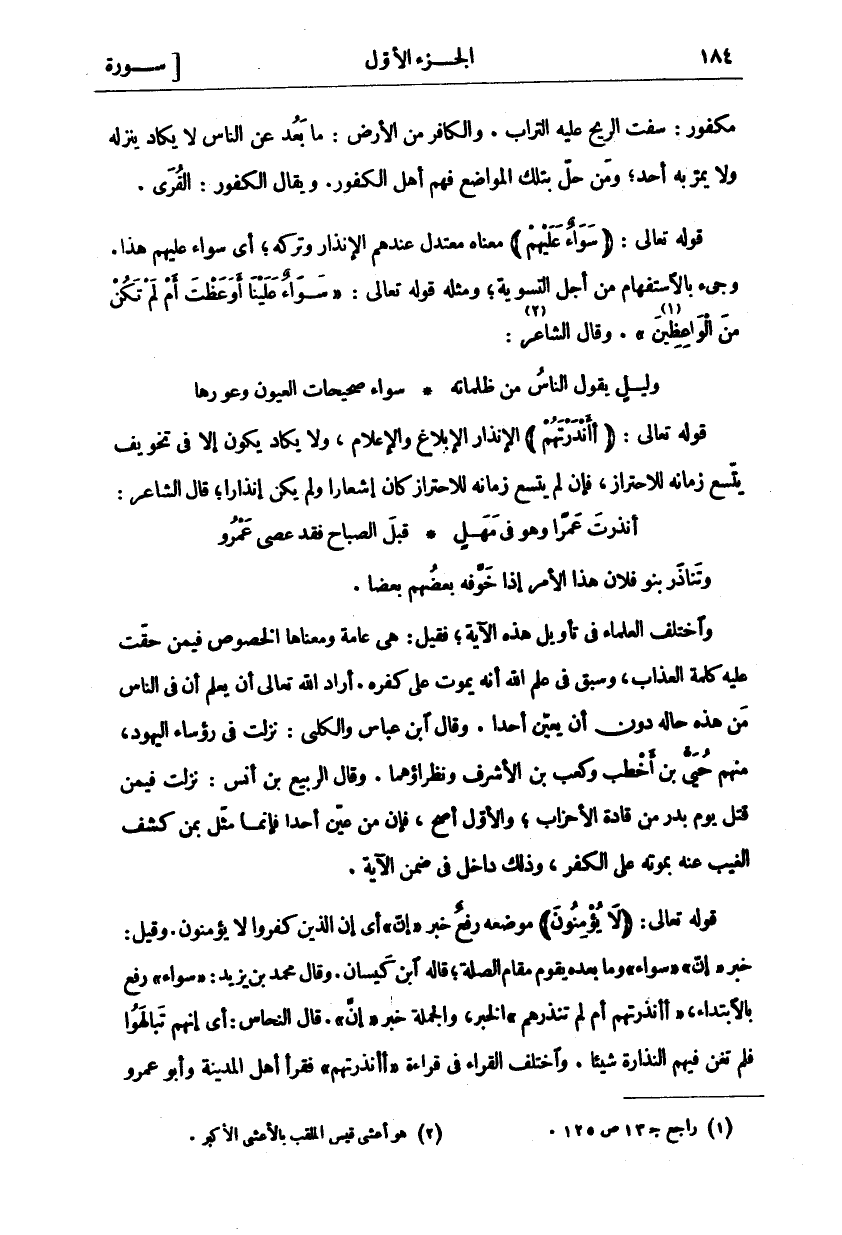 ١٨٤ الجـــزء الأوّل [ ســـورة
مكفور : سفت الريح عليه التراب . والكافر من الأرض : ما بَعُد عن الناس لا يكاد ينزله
ولا يمرّ به أحد؛ ومَن حلّ بتلك المواضع فهم أهل الكفور. ويقال الكفور : القُرَى .
قوله تعالى : ﴿ سَوَاءٌ عَلَيْهِمْ ﴾ معناه معتدل عندهم الإنذار وتركه ؛ أى سواء عليهم هذا.
وجىء بالاٌستفهام من أجل التسوية ؛ ومثله قوله تعالى : « سَــوَاءٌ عَلَيْنَا أَوَعَظْتَ أَمْ لَمْ تَكُنْ
مِنَ الْوَاعِظِينَ (١) » . وقال الشاعر (٢) :
وليــلٍ يقول الناسُ من ظلماته * سواء صحيحات العيون وعورها
قوله تعالى : ﴿ أَأَنْذَرْتَهُمْ ﴾ الإنذار الإبلاغ والإعلام ، ولا يكاد يكون إلا فى تخويف
يتّسع زمانه للاحتراز ، فإن لم يتسع زمانه للاحتراز كان إشعارا ولم يكن إنذارا ؛ قال الشاعر :
أنذرتَ عَمْرًا وهو فى مَهَــلٍ * قبلَ الصباح فقد عصى عَمْرُو
وتَنَاذَر بنو فلان هذا الأمر إذا خَوَّفه بعضُهم بعضا .
واٌختلف العلماء فى تأويل هذه الآية ؛ فقيل : هى عامة ومعناها الخصوص فيمن حقّت
عليه كلمة العذاب ، وسبق فى علم الله أنه يموت على كفره . أراد الله تعالى أن يعلم أن فى الناس
مَن هذه حاله دون أن يعيّن أحدا . وقال اٌبن عباس والكلبى : نزلت فى رؤساء اليهود ،
منهم حُيَىّ بن أَخْطب وكعب بن الأشرف ونظراؤهما . وقال الربيع بن أنس : نزلت فيمن
قتل يوم بدر من قادة الأحزاب ؛ والأوّل أصح ، فإن من عيّن أحدا فإنما مثّل بمن كشف
الغيب عنه بموته على الكفر ، وذلك داخل فى ضمن الآية .
قوله تعالى: ﴿ لَا يُؤْمِنُونَ ﴾ موضعه رفعٌ خبر « إنّ » أى إن الذين كفروا لا يؤمنون . وقيل :
خبر « إنّ » « سواء » وما بعده يقوم مقام الصلة ؛ قاله اٌبن كَيسان . وقال محمد بن يزيد : « سواء » رفع
بالاٌبتداء ، « أأنذرتهم أم لم تنذرهم » الخبر ، والجملة خبر « إنّ » . قال النحاس : أى إنهم تَبَالَهُوا
فلم تغن فيهم النذارة شيئا . واٌختلف القراء فى قراءة « أأنذرتهم » فقرأ أهل المدينة وأبو عمرو
(١) راجع جـ ١٣ ص ١٢٥ . (٢) هو أعشى قيس الملقب بالأعشى الأكبر .